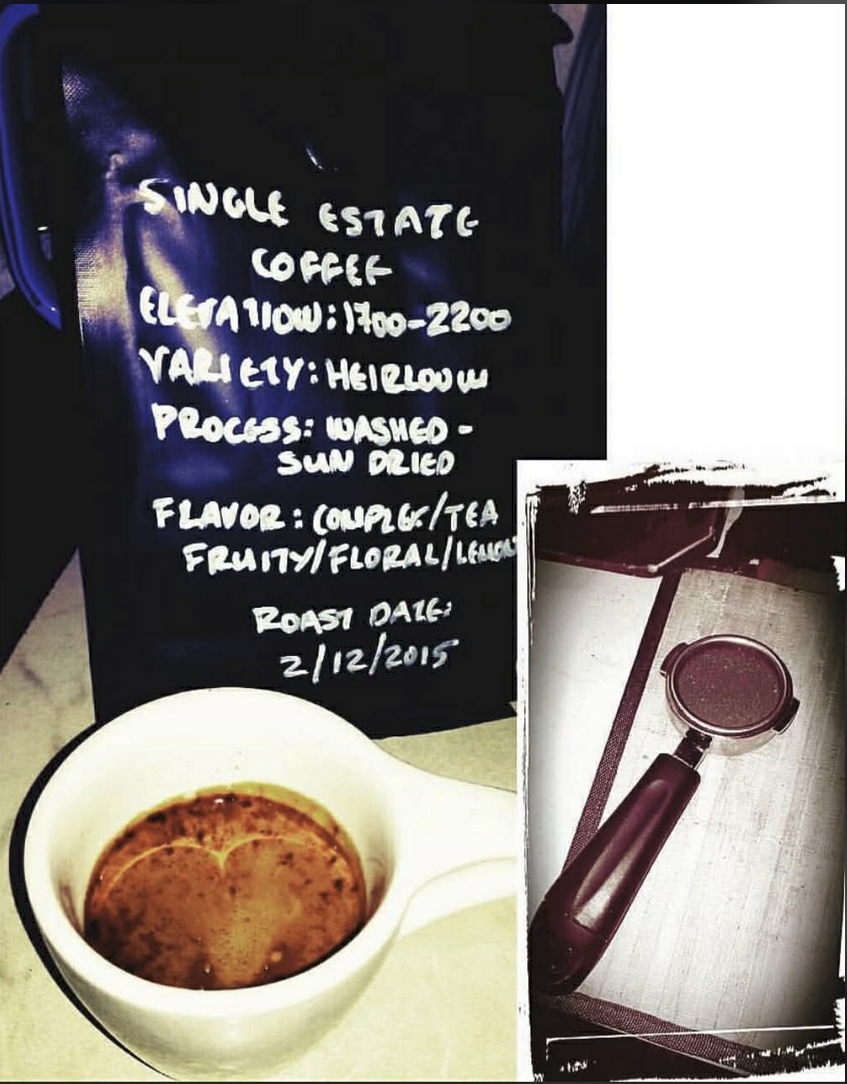 SINGLE ESTATE
COFFEE
ELEVATION: 1700-2200
VARIETY: HEIRLOOM
PROCESS: WASHED -
SUN DRIED
FLAVOR: COMPLEX/TEA
FRUITY/FLORAL/LEMON
ROAST DATE:
2/12/2015